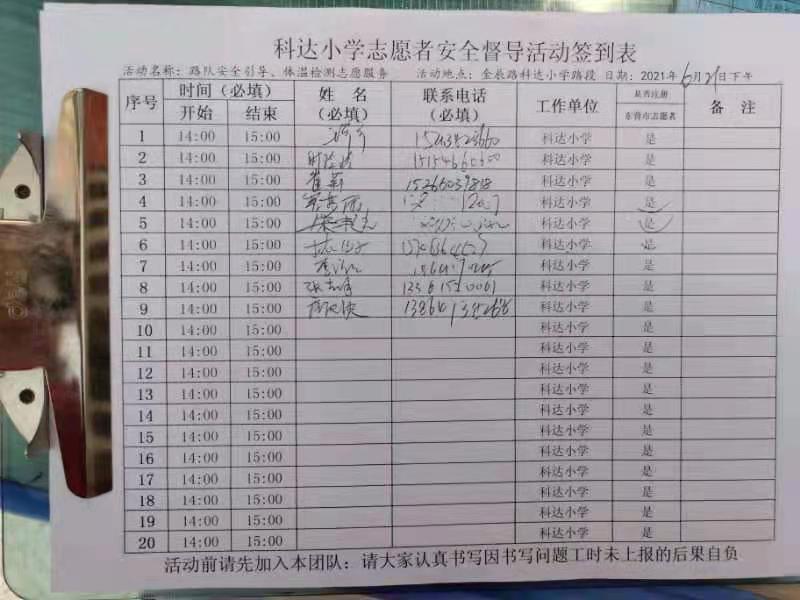 科达小学志愿者安全督导活动签到表
活动名称：路队安全引导、体温检测志愿服务 活动地点：金辰路科达小学路段 日期：2021年6月21日下午
序号 时间（必填） 姓 名（必填） 联系电话（必填） 工作单位 是否注册东营市志愿者 备 注
开始 结束
1 14:00 15:00 科达小学 是
2 14:00 15:00 科达小学 是
3 14:00 15:00 崔莉 科达小学 是
4 14:00 15:00 科达小学 是
5 14:00 15:00 科达小学 是
6 14:00 15:00 科达小学 是
7 14:00 15:00 科达小学 是
8 14:00 15:00 科达小学 是
9 14:00 15:00 科达小学 是
10 14:00 15:00 科达小学 是
11 14:00 15:00 科达小学 是
12 14:00 15:00 科达小学 是
13 14:00 15:00 科达小学 是
14 14:00 15:00 科达小学 是
15 14:00 15:00 科达小学 是
16 14:00 15:00 科达小学 是
17 14:00 15:00 科达小学 是
18 14:00 15:00 科达小学 是
19 14:00 15:00 科达小学 是
20 14:00 15:00 科达小学 是
活动前请先加入本团队：请大家认真书写因书写问题工时未上报的后果自负